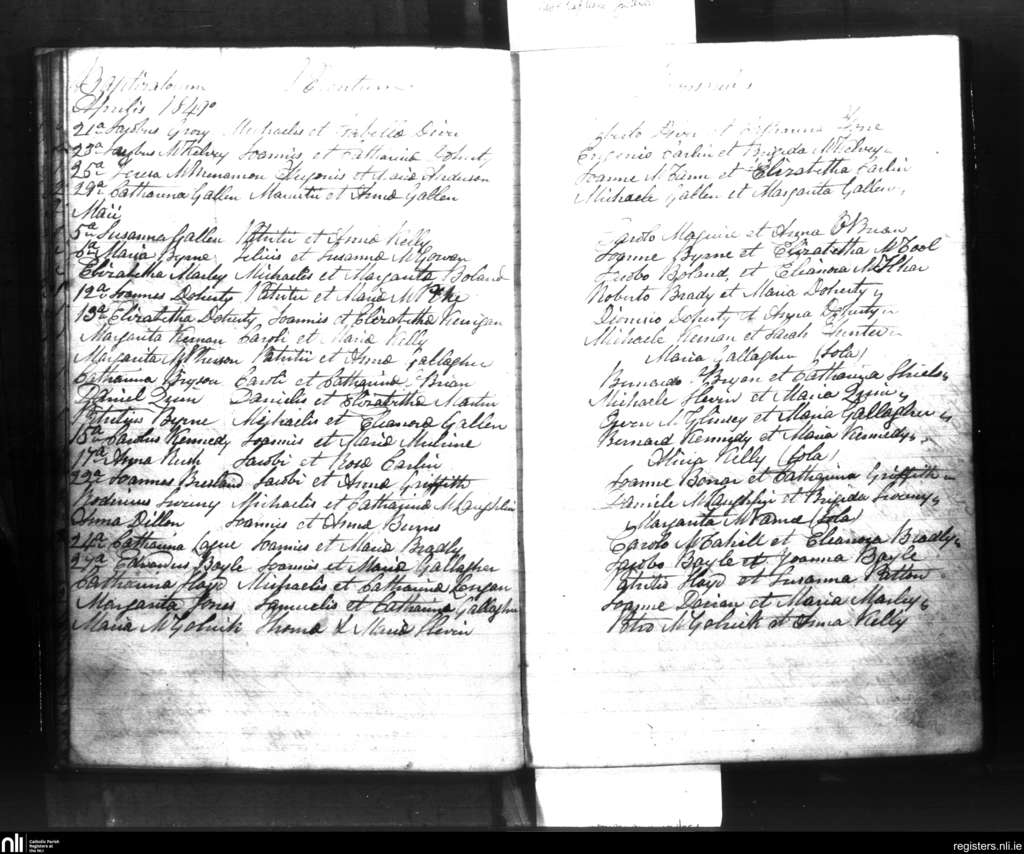 Baptizatorum Parentum
Aprilis 1849
21a Jacobus Michaelis et Isabella
23a Jacobus McKelvey Joannis et Catharina Doherty
25a Teresa McMenamon Eugenii et Maria Anderson
29a Catharina Gallen Martin et Anna Gallen
Maii
5a Susanna Gallen Patritii et Anna Kelly
6a Maria Byrne et Susanna McGowan
Elizabetha Marley Michaelis et Margarita Boland
12a Joannes Doherty Patritii et Maria
13a Elizabetha Doherty Joannis et Elizabetha Kerrigan
Margarita Kernan Caroli et Maria Kelly
Margarita McPherson Patritii et Anna Gallagher
Catharina Bryson Caroli et Catharina Brian
Daniel Quin Danielis et Elizabetha Martin
Patritius Byrne Michaelis et Eleanora Gallen
15a Carolus Kennedy Joannis et Maria
17a Anna Rush Jacobi et Rosa Carlin
22a Joannes Bresland Jacobi et Anna Griffith
Sweeny Michaelis et Catharina McLaughlin
Anna Dillon Joannis et Anna Burns
24a Catharina Joannis et Maria Bradly
27a Edvardus Boyle Joannis et Maria Gallagher
Catharina Floyd Michaelis et Catharina
Margarita Jones Samuelis et Catharina Gallagher
Maria McGolrick Thoma et Maria Slevin
et
Eugenio Carlin et Brigida McKelvey
Joanne McCann et Elizabetha Carlin
Michaele Gallen et Margarita Gallen
Carolo Maguire et Anna O'Brian
Joanne Byrne et Elizabetha McCool
Jacobo Boland et Eleanora
Roberto Brady et Maria Doherty
Dionisio Doherty et Anna Doherty
Michaele Kernan et Sarah Hunter
Maria Gallagher (Sola)
Bernardo Bryson et Catharina Shiels
Michaele Slevin et Maria Quin
Owen McGlinsey et Maria Gallagher
Bernard Kennedy et Maria Kennedy
Alicia Kelly (Sola)
Joanne Bonar et Catharina Griffith
Daniele McLaughlin et Brigida Sweeny
Margarita (Sola)
Carolo McCahill et Elianora Bradly
Jacobo Boyle et Joanna Boyle
Patritio Floyd et Susanna Patton
Joanne Dorian et Maria Marley
Petro McGolrick et Anna Kelly
nli
Catholic Parish
Registers at
the NLI
registers.nli.ie